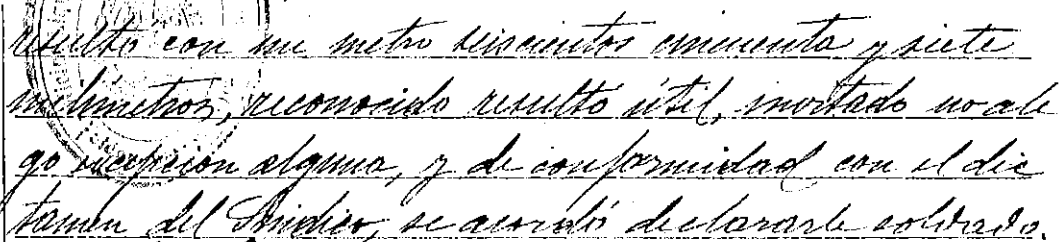 resultó con un metro seiscientos cincuenta y siete
milímetros, reconocido resultó útil, invitado no ale
go excepcion alguna, y de conformidad con el dic
tamen del Sindico, se acordó declararle soldado.